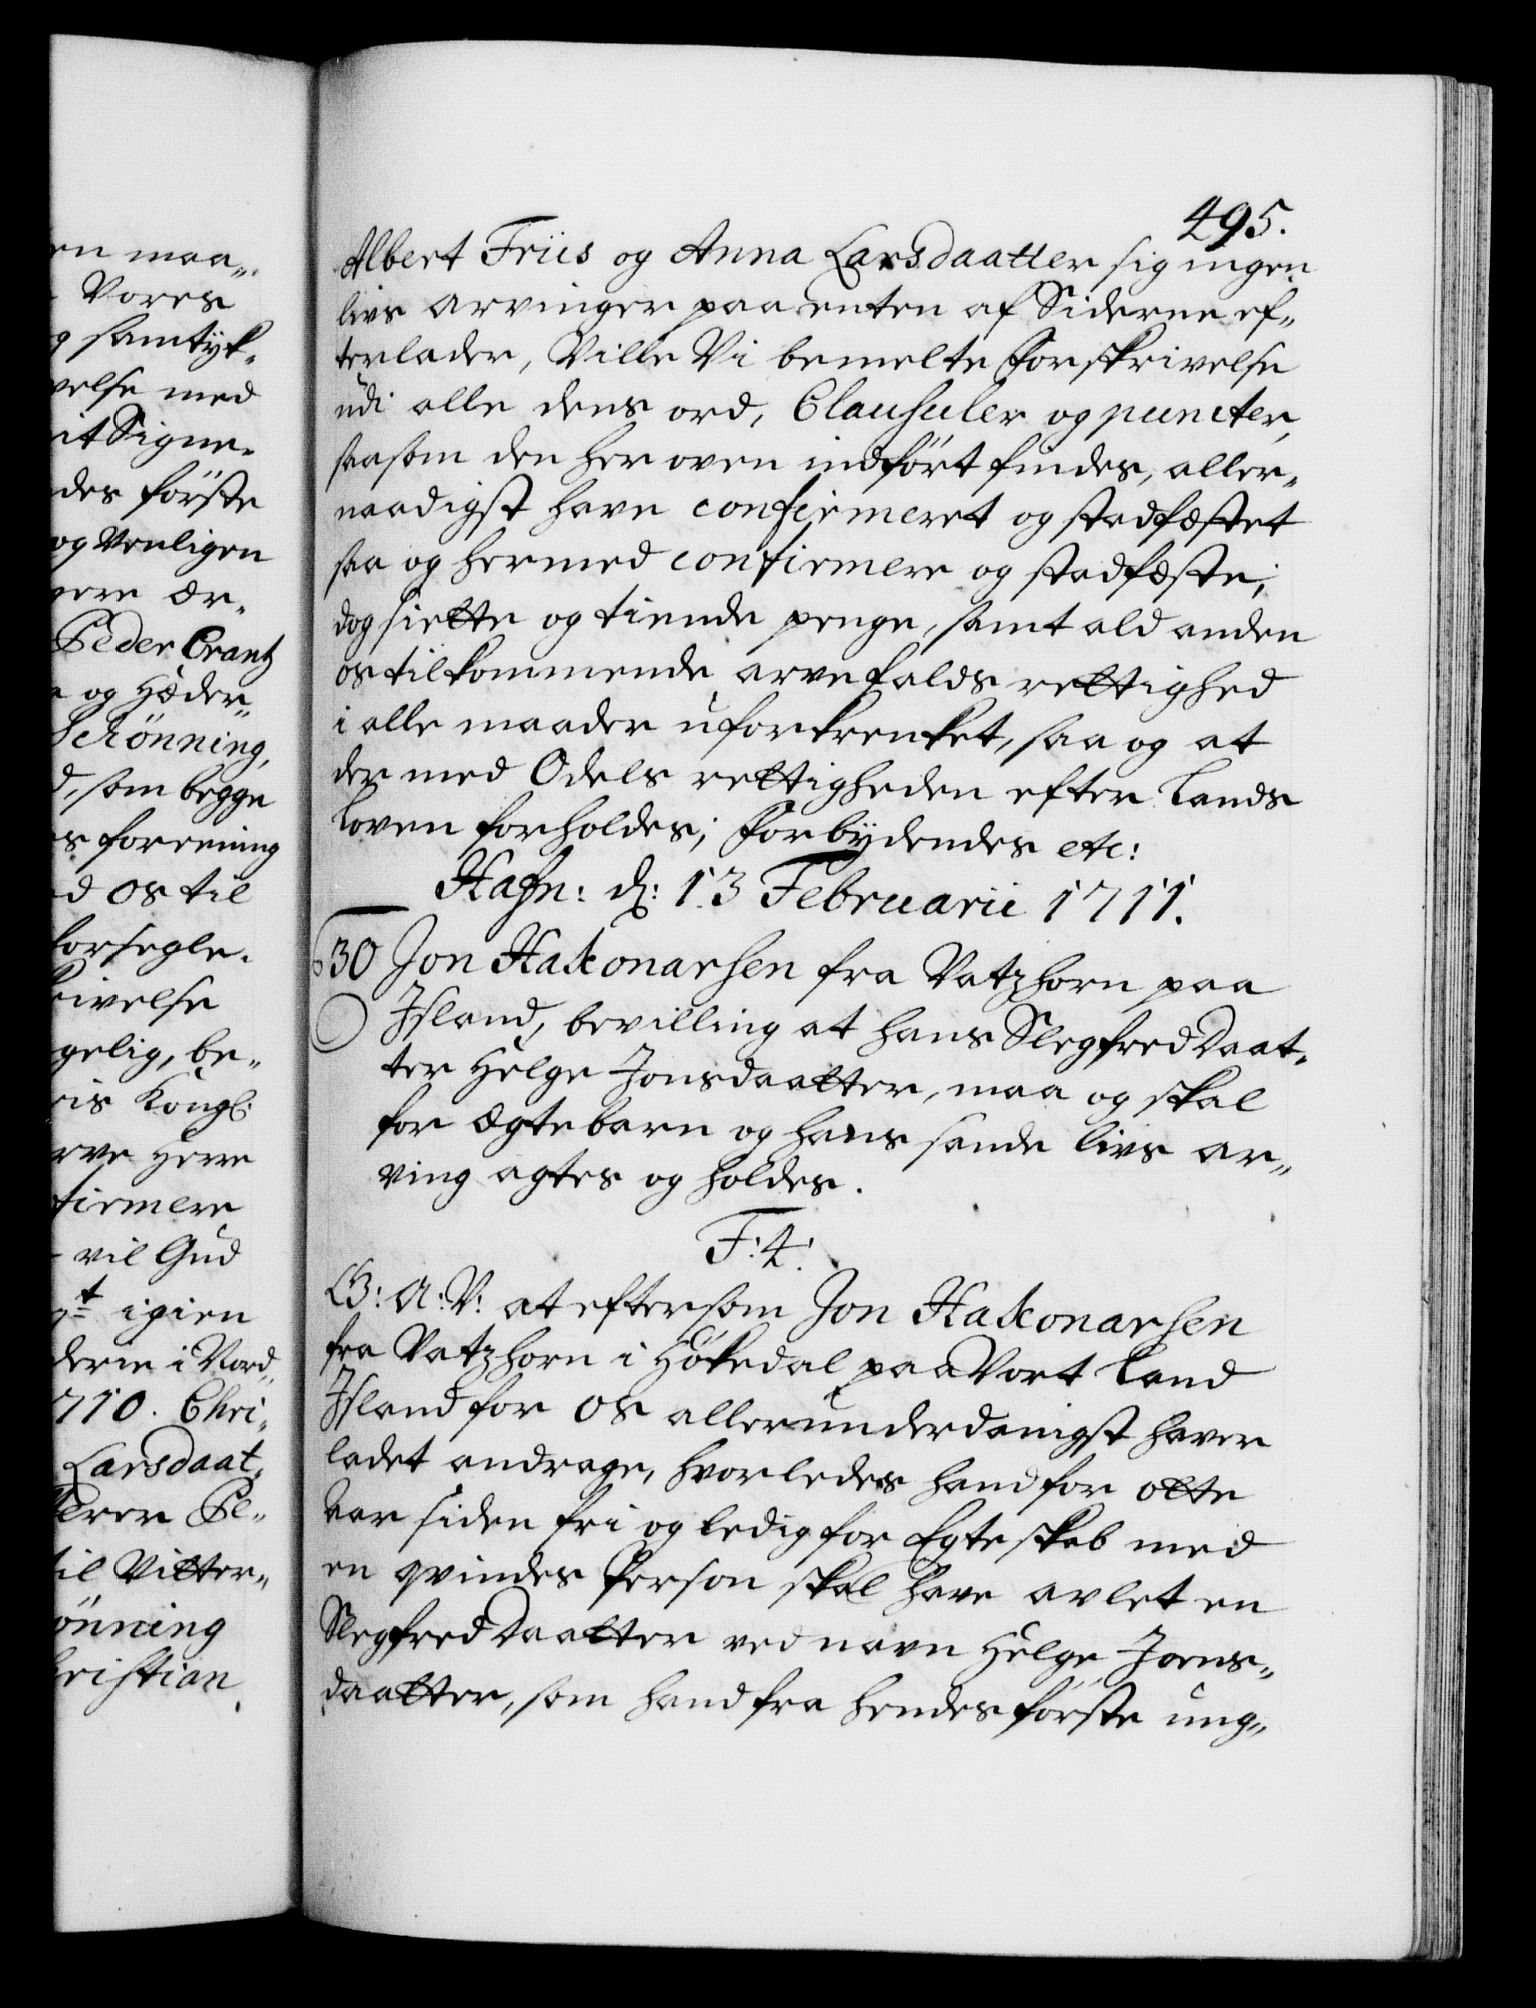 en maa„
Vores
g samtyk„
velse med
it Signe„
des første
og venligen
gere ær„
Peder Crantz
og Hæder„
Schönning,
d, som begge
s forening
d os til
forsegle„
krivelse
gelig, be„
ris Kongl:
rve Herre
firmere
vil Gud
igien
derne i Nord„
1710. Chri„
Larsdaat„
Peter Pe„
til Vitter„
önning
hristian
495.
Albert Friis og Anna Larsdaatter sig ingen
livs arvinger paa enten af Siderne ef„
terlader, Ville Vi bemelte Forskrivelse
udi alle dens ord, Clausuler og puncter,
saasom den her oven indført findes, aller„
naadigst have confirmeret og stadfæstet
saa og hermed confirmere og stadfæste,
dog siette og tiende penge, samt ald anden
os tilkommende arvefalds rettighed
i alle maader uforkrenket, saa og at
der med Odels rettigheden efter Lands
Loven forholdes; Forbydendes etc:
Hafn: d: 13 Februarii 1711.
30 Jon Hakonarsen fra Vatzhorn paa
Island, bevilling at hans Slegfred Daat„
ter Helge Jonsdaatter, maa og skal
for Ægtebarn og hans sande livs ar„
ving agtes og holdes.
F: 4:
G: A: V: at eftersom Jon Hakonarsen
fra Vatzhorn i Høkedal paa Vort Land
Island for os allerunderdanigst haver
ladet andrage, hvorledes hand for otte
Aar siden fri og ledig for Egteskab med
en qvindes Person skal have avlet en
Slegfred Daatter ved navn Helge Joens„
daatter, som hand fra hendes første ung„